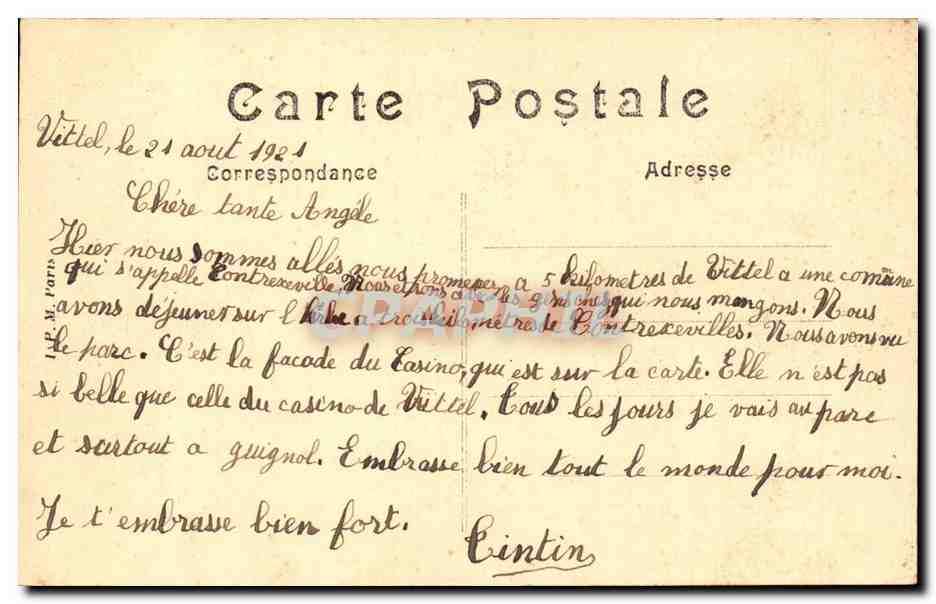 Carte Postale
Vittel, le 21 aout 1921
Correspondance
Adresse
Chére tante Angéle
Hier nous sommes allés nous promener a 5 kilometres de Vittel a une comune
qui s'appelle Contrexeville. Nous etions avec les gens chez qui nous mangons. Nous
avons déjeuner sur l'herbe a trois kilometres de Contrexevilles. Nous avons vu
le parc. C'est la facade du Casino, qui est sur la carte. Elle n'est pas
si belle que celle du casino de Vittel. Tous les jours je vais au parc
et surtout a guignol. Embrasse bien tout le monde pour moi.
Je t'embrasse bien fort.
Tintin
Paris